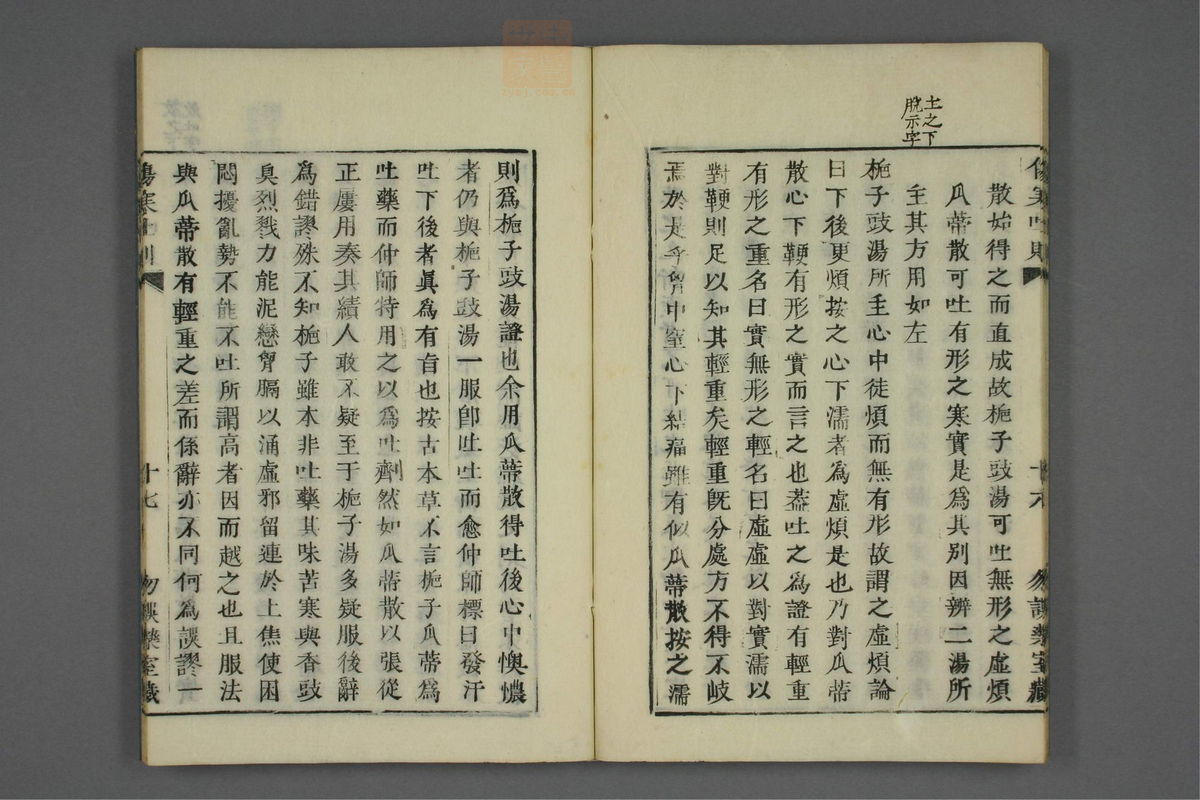 土之下
脫示字
傷寒吐則 十六 勿誤藥室藏
散始得之而直成故梔子豉湯可吐無形之虛煩
瓜蒂散可吐有形之寒實是爲其別因辨二湯所
主其方用如左
梔子豉湯所主心中徒煩而無有形故謂之虛煩論
曰下後更煩按之心下濡者為虛煩是也乃對瓜蒂
散心下鞕有形之實而言之也葢吐之為證有輕重
有形之重名曰實無形之輕名曰虛虛以對實濡以
對鞕則足以知其輕重矣輕重旣分處方不得不岐
焉於是乎胷中窒心下結痛雖有似瓜蒂散按之濡
則爲梔子豉湯證也余用瓜蒂散得吐後心中懊憹
者仍與梔子豉湯一服卽吐吐而愈仲師標曰發汗
吐下後者眞為有旨也按古本草不言梔子瓜蒂爲
吐藥而仲師特用之以爲吐劑然如瓜蒂散以張從
正屢用奏其績人敢不疑至于梔子湯多疑服後辭
為錯謬殊不知梔子雖本非吐藥其味苦寒與香豉
臭烈戮力能泥戀胷膈以涌虛邪留連於上焦使困
悶擾亂勢不能不吐所謂高者因而越之也且服法
與瓜蒂散有輕重之差而係辭亦不同何為誤謬一
傷寒吐則 十七 勿誤藥室藏